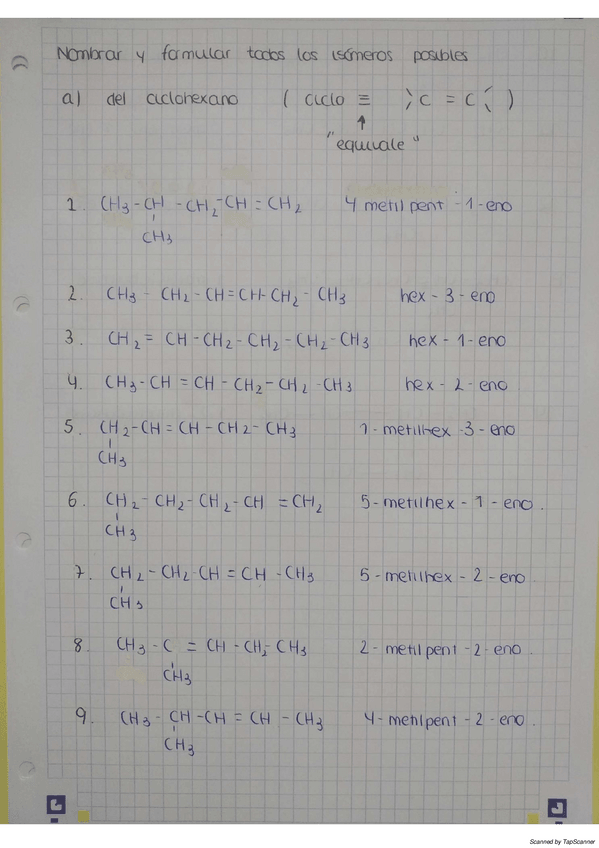 Nombrar y formular todos los isómeros posibles
a) del ciclohexano ( ciclo ≡ >C = C< )
↑
"equivale"
1. CH3 - CH - CH2 - CH = CH2 4 metil pent - 1 - eno
CH3
2. CH3 - CH2 - CH = CH - CH2 - CH3 hex - 3 - eno
3. CH2 = CH - CH2 - CH2 - CH2 - CH3 hex - 1 - eno
4. CH3 - CH = CH - CH2 - CH2 - CH3 hex - 2 - eno
5. CH2 - CH = CH - CH2 - CH3 1 - metilhex - 3 - eno
CH3
6. CH2 - CH2 - CH2 - CH = CH2 5 - metilhex - 1 - eno.
CH3
7. CH2 - CH2 - CH = CH - CH3 5 - metilhex - 2 - eno
CH3
8. CH3 - C = CH - CH2 - CH3 2 - metil pent - 2 - eno.
CH3
9. CH3 - CH - CH = CH - CH3 4 - metilpent - 2 - eno.
CH3
Scanned by TapScanner